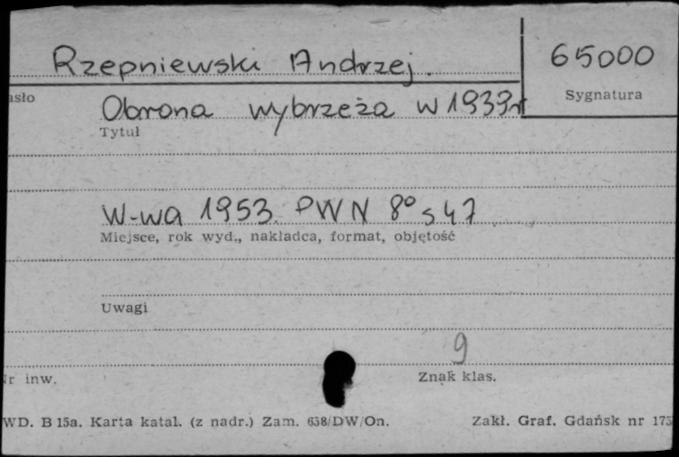 Rzepniewski Andrzej.
65000
asło
Sygnatura
Obrona wybrzeża w 1939r
Tytuł
W-wa 1953. PWN 8° s 47
Miejsce, rok wyd., nakładca, format, objętość
Uwagi
9
Nr inw.
Znak klas.
WD. B 15a. Karta katal. (z nadr.) Zam. 638/DW/On.
Zakł. Graf. Gdańsk nr 175